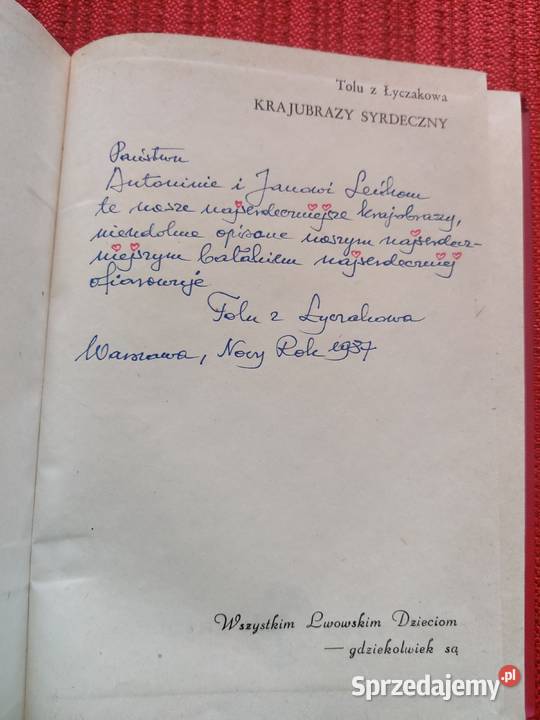 Tolu z Łyczakowa
KRAJUBRAZY SYRDECZNY
Państwu
Antoninie i Janowi
te nasze najserdeczniejsze krajobrazy,
nieudolnie opisane naszym najserdecz-
niejszym bałakiem najserdeczniej
ofiarowuje
Tolu z Łyczakowa
Warszawa, Nowy Rok 1987
Wszystkim Lwowskim Dzieciom
— gdziekolwiek są
Sprzedajemy.pl